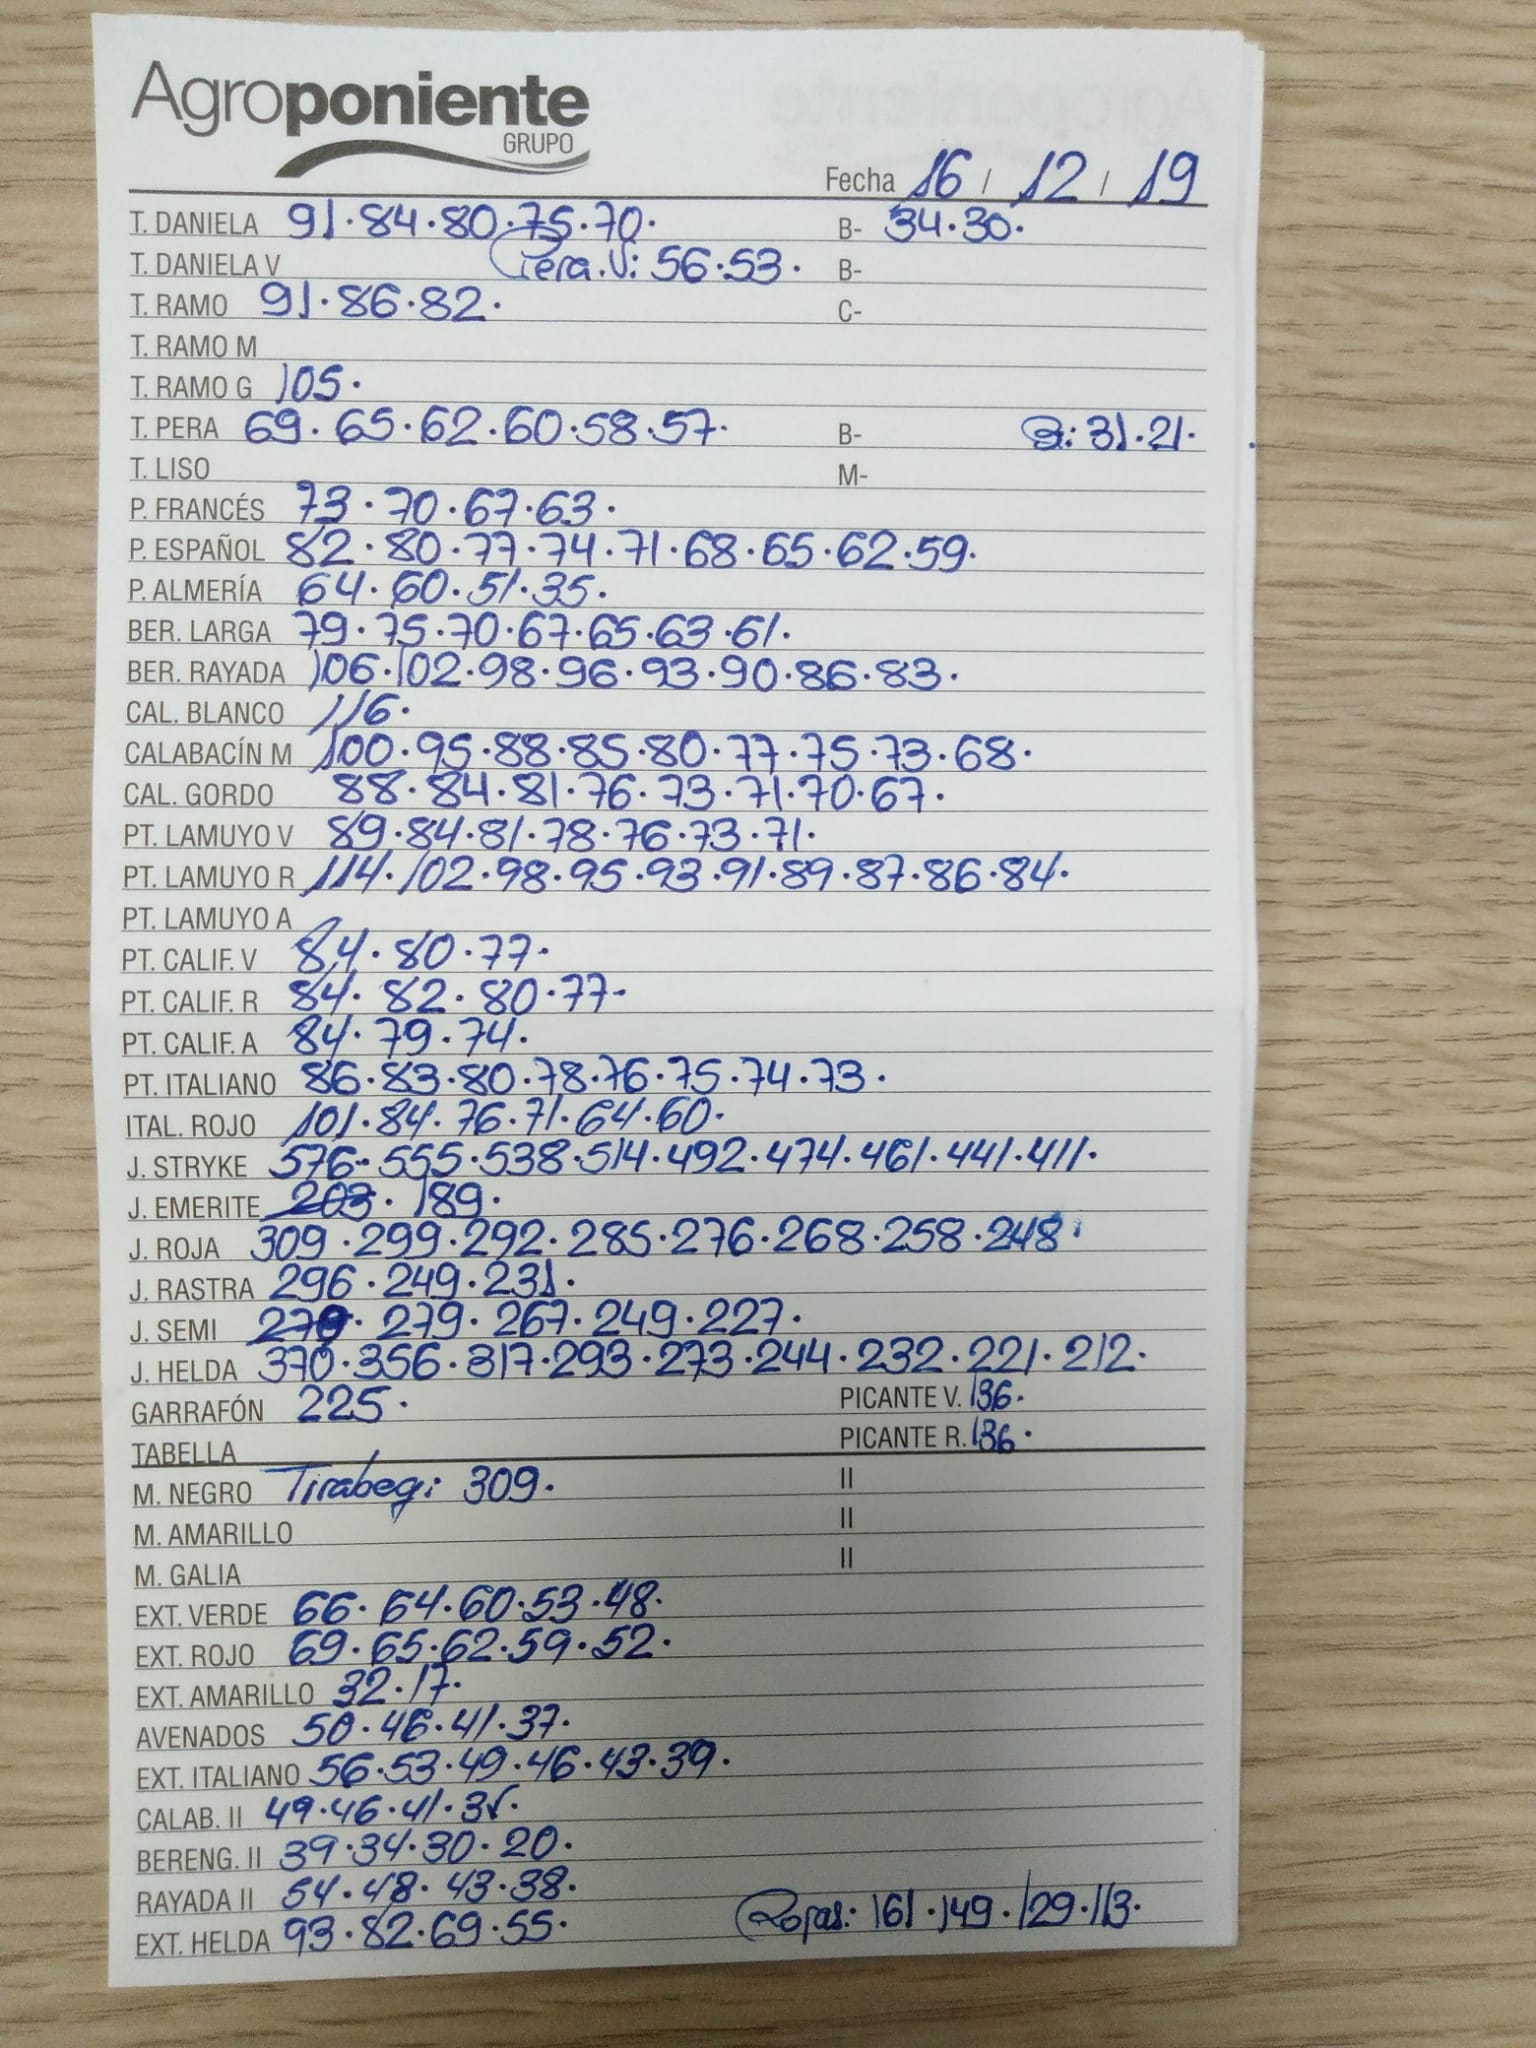 Agroponiente
GRUPO
Fecha 16 / 12 / 19
T. DANIELA 91.84.80.75.70. B- 34.30.
T. DANIELA V Pera.V: 56.53. B-
T. RAMO 91.86.82. C-
T. RAMO M
T. RAMO G 105.
T. PERA 69.65.62.60.58.57. B- B: 31.21.
T. LISO M-
P. FRANCÉS 73.70.67.63.
P. ESPAÑOL 82.80.77.74.71.68.65.62.59.
P. ALMERÍA 64.60.51.35.
BER. LARGA 79.75.70.67.65.63.61.
BER. RAYADA 106.102.98.96.93.90.86.83.
CAL. BLANCO 116.
CALABACÍN M 100.95.88.85.80.77.75.73.68.
CAL. GORDO 88.84.81.76.73.71.70.67.
PT. LAMUYO V 89.84.81.78.76.73.71.
PT. LAMUYO R 114.102.98.95.93.91.89.87.86.84.
PT. LAMUYO A
PT. CALIF. V 84.80.77.
PT. CALIF. R 84.82.80.77.
PT. CALIF. A 84.79.74.
PT. ITALIANO 86.83.80.78.76.75.74.73.
ITAL. ROJO 101.84.76.71.64.60.
J. STRYKE 576.555.538.514.492.474.461.441.411.
J. EMERITE 203.189.
J. ROJA 309.299.292.285.276.268.258.248.
J. RASTRA 296.249.231.
J. SEMI 279.267.249.227.
J. HELDA 370.356.317.293.273.244.232.221.212.
GARRAFÓN 225. PICANTE V. 136.
TABELLA PICANTE R. 136.
M. NEGRO Tirabeq: 309. II
M. AMARILLO II
M. GALIA II
EXT. VERDE 66.64.60.53.48.
EXT. ROJO 69.65.62.59.52.
EXT. AMARILLO 32.17.
AVENADOS 50.46.41.37.
EXT. ITALIANO 56.53.49.46.43.39.
CALAB. II 49.46.41.
BERENG. II 39.34.30.20.
RAYADA II 54.48.43.38.
EXT. HELDA 93.82.69.55. Rojas: 161.149.129.113.